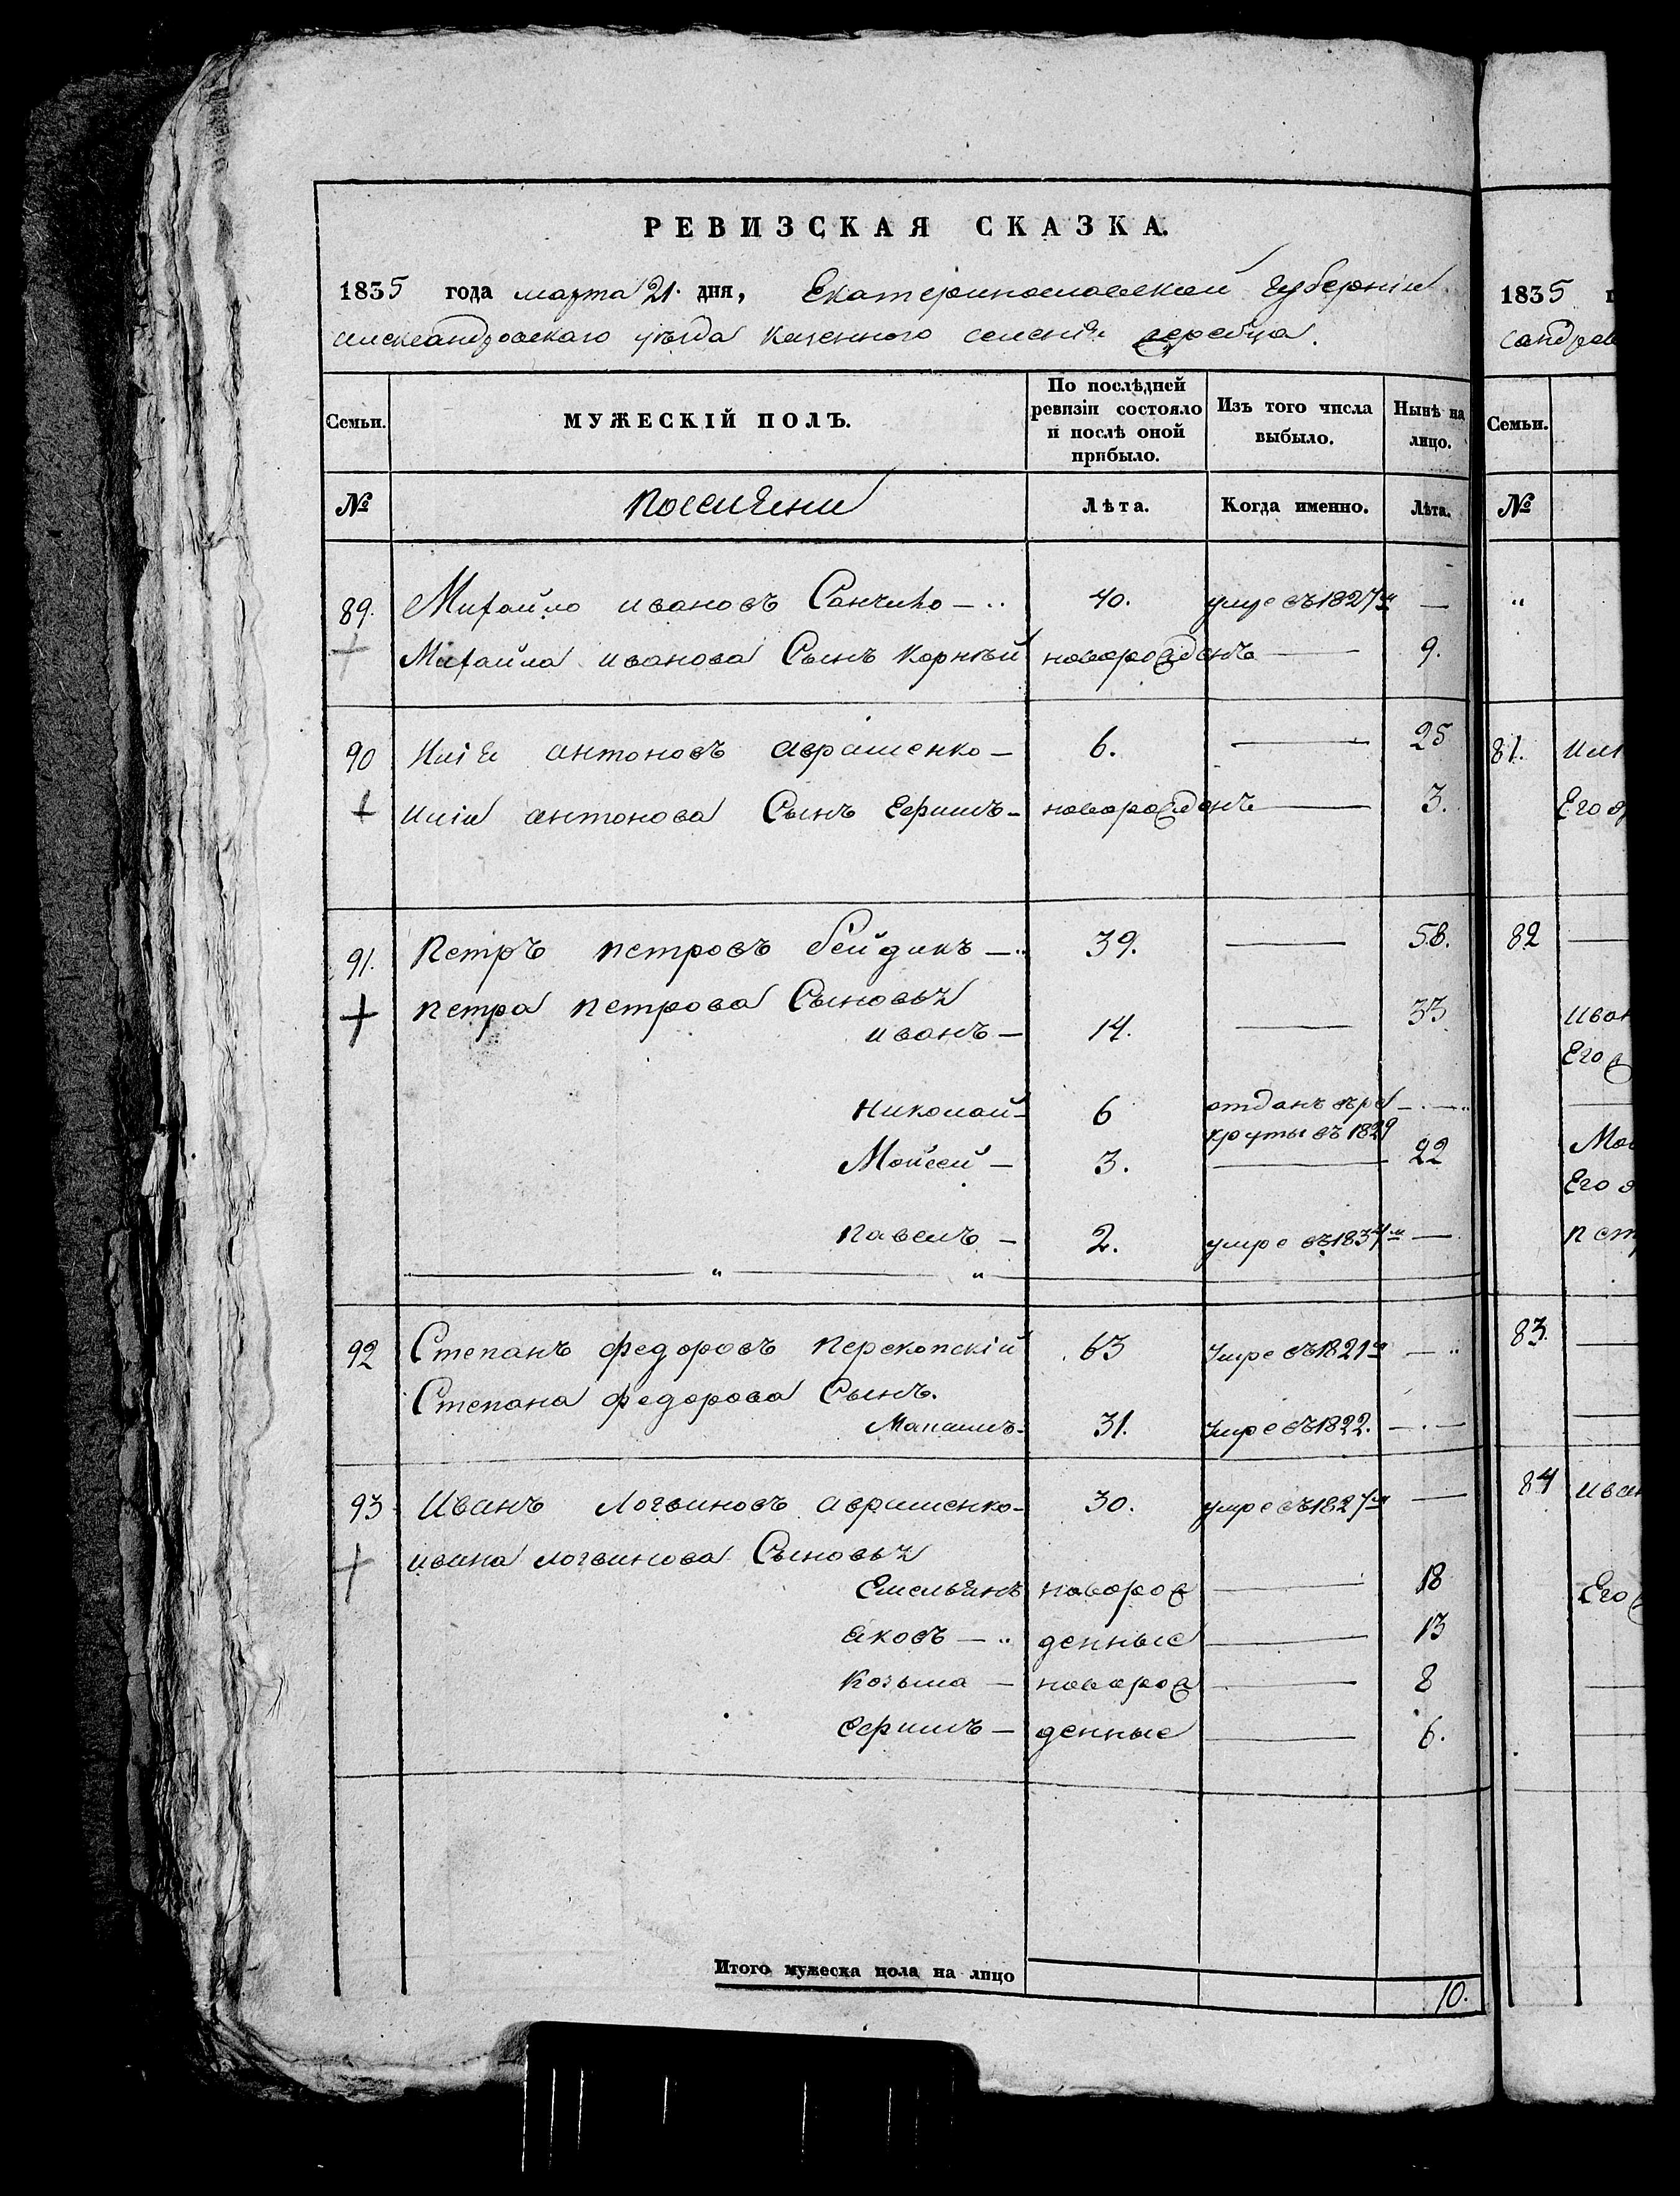 РЕВИЗСКАЯ СКАЗКА.
1835 года марта 21. дня, Екатеринославской губернiи
александровскаго уѣзда казенного селенiя жеребца.
Семьи. МУЖЕСКІЙ ПОЛЪ. По послѣдней ревизіи состояло и послѣ оной прибыло. Изъ того числа выбыло. Нынѣ на лицо.
№ Поселяни Лѣта. Когда именно. Лѣта.
89. Михайло ивановъ Санчило 40. умре въ 1827м —
Михайла иванова Сынъ Корнѣй новорожденъ — 9.
90 Илія антоновъ аврашенко — 6. — 25
Иліи антонова Сынъ Ефимъ — новорожденъ — 3.
91. Петръ петровъ бейдикъ — 39. — 58.
петра петрова Сыновья
иванъ — 14. — 33
николай — 6 отданъ въре
круты въ 1829
Мойсей — 3. — 22
павелъ — 2. умре въ 1834м —
92 Степанъ федоровъ перекопскій 63 умре въ 1821м —
Степана федорова Сынъ.
Мапашъ 31. умре въ 1822. —
93 Иванъ Логвиновъ аврашенко 30. умре въ 1827м —
ивана логвинова Сыновья
Емельянъ новорож — 18
яковъ — денные — 13
козьма — новорож — 8
Ефимъ — денные — 6.
Итого мужеска пола на лицо 10.
1835
сандров
Семьи.
№
81. Илі
Его
82 —
иван
Его
Мой
Его
пет
83. —
84 иван
Его